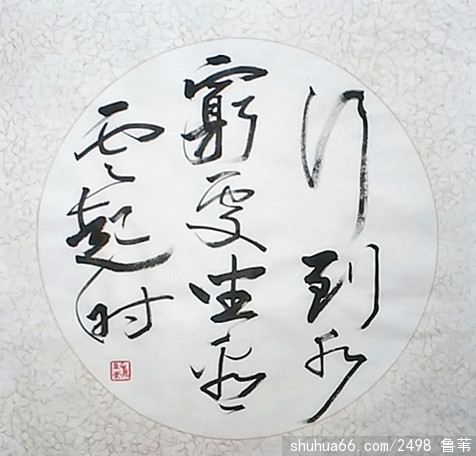 行到水
窮處坐看
雲起时
shuhua66.com/2498 鲁苇